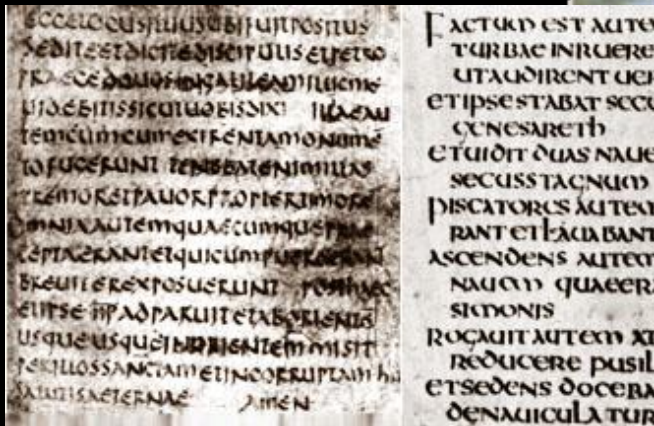 ECCELOCUSILLIUSUBIFUITPOSITUS
SEDITEETDICITEDISCIPULISETPETRO
PRAECEDOUOSINGALILEAM ILLICME
UIDEBITISSICUTUOBISDIXI ILLAEAU
TEMCUMCUMEXIRENTAMONUME
TOFUGERUNT TENEBATENIMILLAS
TREMORETPAUORPROPTERTIMORE
OMNIAAUTEMQUAECUMQUEPRAE
CEPTAERANTETQUICUMPUEROERANT
BREUITEREXPOSUERUNT POSTHAEC
ETIPSE IHSADPARUITETABORIENTE
USQUEUSQUEINORIENTEM MISIT
PERILLOSSANCTAMETINCORRUPTAM HA
SALUTISAETERNAE AMEN
FACTUM EST AUTE
TURBAE INRUERE
UTAUDIRENT UER
ETIPSESTABAT SECU
GENESARETH
ETUIDIT DUAS NAUE
SECUSSTAGNUM
PISCATORES AUTEM
RANT ETLAUABANT
ASCENDENS AUTEM
NAUEM QUAEERA
SIMONIS
ROGAUIT AUTEM
REDUCERE PUSIL
ETSEDENS DOCEBA
DENAUICULA TUR